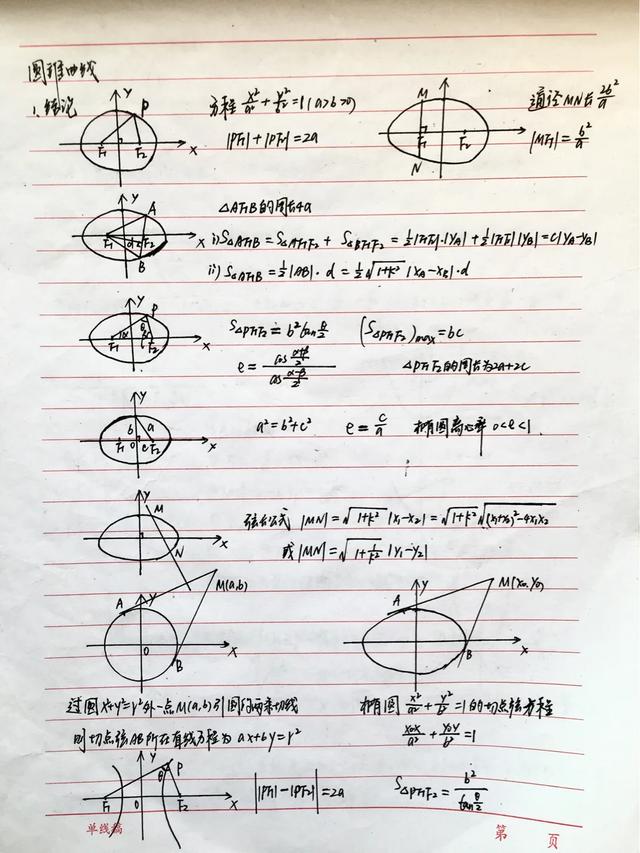 圆锥曲线
1、结论
方程 x²/a² + y²/b² = 1 (a>b>0)
|PF₁|+|PF₂|=2a
通径MN长 2b²/a
|MF₁| = b²/a
△AF₁B的周长4a
i) S△AF₁B = S△AF₁F₂ + S△BF₁F₂ = ½|F₁F₂|·|yA| + ½|F₁F₂||yB| = c|yA-yB|
ii) S△AF₁B = ½|AB|·d = ½√(1+k²) |xA-xB|·d
S△PF₁F₂ = b² tan θ/2
(S△PF₁F₂)max = bc
e = cos (α+β)/2 / cos (α-β)/2
△PF₁F₂的周长为2a+2c
a²=b²+c²
e = c/a
椭圆离心率 0<e<1
弦长公式 |MN| = √(1+k²) |x₁-x₂| = √(1+k²) √((x₁+x₂)²-4x₁x₂)
或 |MN| = √(1+1/k²) |y₁-y₂|
M(a,b)
M(x₀,y₀)
过圆x²+y²=r²外一点M(a,b)引圆的两条切线
则切点弦AB所在直线方程为 ax+by=r²
椭圆 x²/a² + y²/b² = 1的切点弦方程
x₀x/a² + y₀y/b² = 1
||PF₁|-|PF₂||=2a
S△PF₁F₂ = b² / tan θ/2
单线稿
第 页